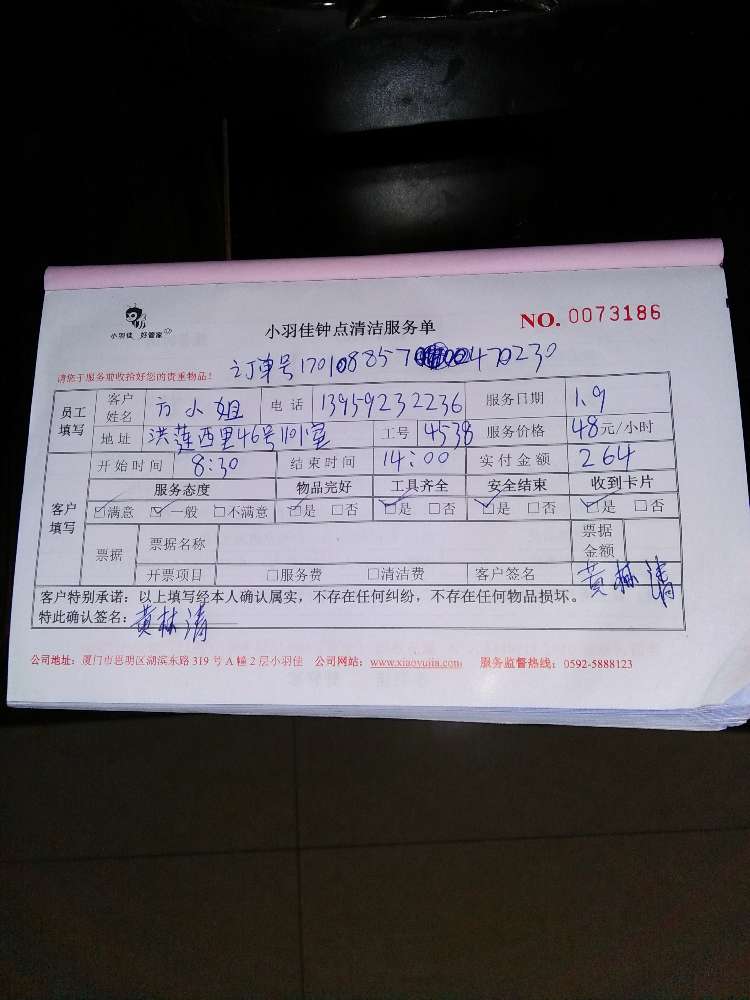 小羽佳 好管家
小羽佳钟点清洁服务单 NO. 0073186
请您于服务前收拾好您的贵重物品! 订单号170108857 470230
员工填写 客户姓名 方小姐 电话 13959232236 服务日期 1.9
地址 洪莲西里46号1101室 工号 4538 服务价格 48元/小时
客户填写 开始时间 8:30 结束时间 14:00 实付金额 264
服务态度 物品完好 工具齐全 安全结束 收到卡片
☑满意 ☑一般 □不满意 ☑是 □否 ☑是 □否 ☑是 □否 ☑是 □否
票据 票据名称 票据金额
开票项目 □服务费 □清洁费 客户签名 黄林清
客户特别承诺:以上填写经本人确认属实,不存在任何纠纷,不存在任何物品损坏。
特此确认签名:黄林清
公司地址:厦门市思明区湖滨东路319号A幢2层小羽佳 公司网站:www.xiaoyujia.com 服务监督热线:0592-5888123